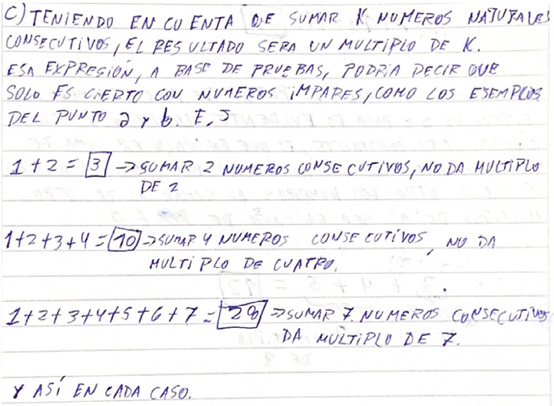 C) TENIENDO EN CUENTA QUE SUMAR K NUMEROS NATURALES
CONSECUTIVOS, EL RESULTADO SERA UN MULTIPLO DE K.
ESA EXPRESIÓN, A BASE DE PRUEBAS, PODRIA DECIR QUE
SOLO ES CIERTO CON NUMEROS IMPARES, COMO LOS EJEMPLOS
DEL PUNTO a y b. EJ
1 + 2 = 3 → SUMAR 2 NUMEROS CONSECUTIVOS, NO DA MULTIPLO
DE 2
1+2+3+4 = 10 → SUMAR 4 NUMEROS CONSECUTIVOS, NO DA
MULTIPLO DE CUATRO.
1+2+3+4+5+6+7 = 28 → SUMAR 7 NUMEROS CONSECUTIVOS
DA MULTIPLO DE 7.
Y ASÍ EN CADA CASO.